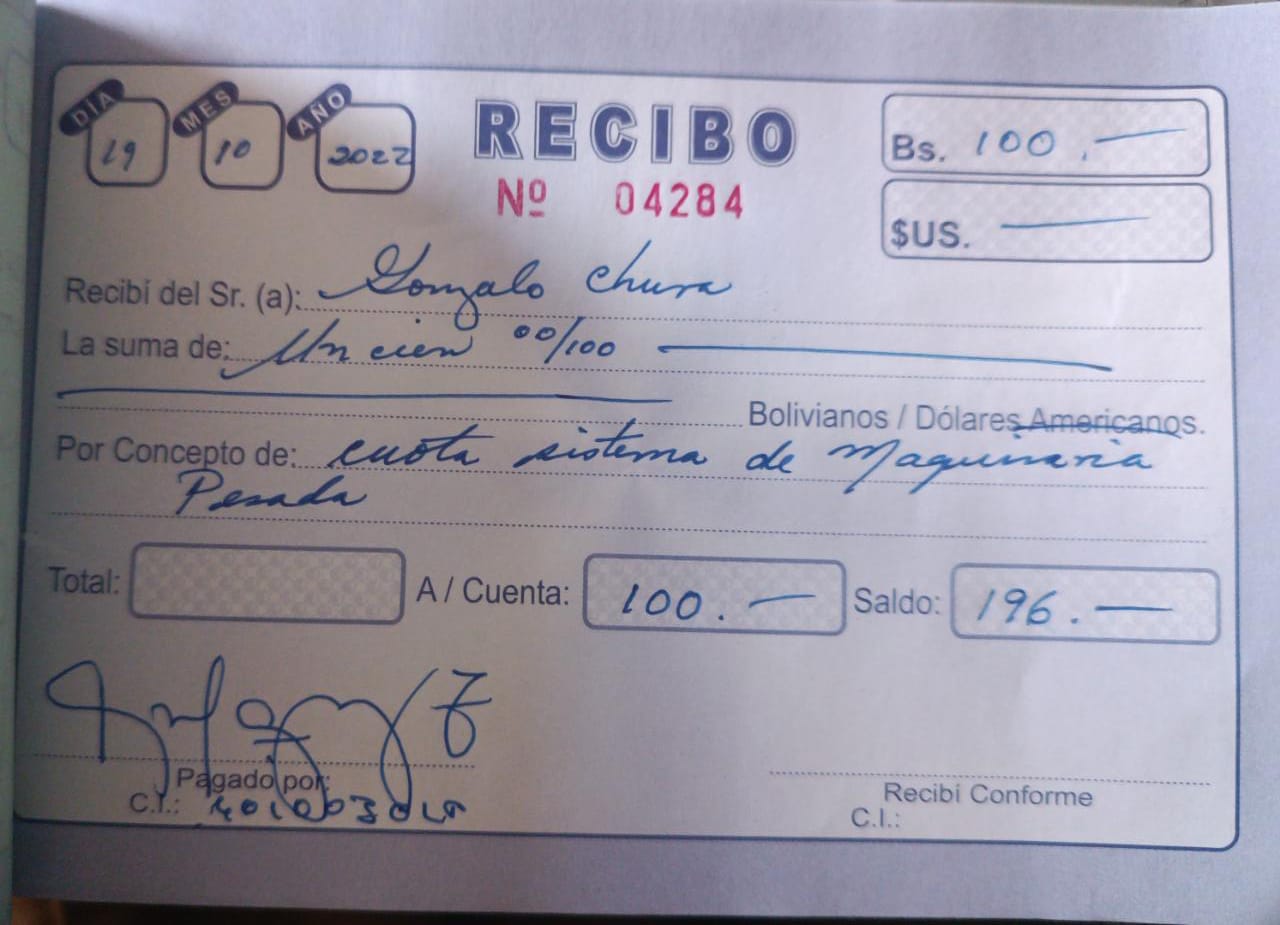 DIA MES AÑO
19 10 2022
RECIBO
Nº 04284
Bs. 100.—
$US. —
Recibí del Sr. (a): Gonzalo Chura
La suma de: Un cien 00/100
Bolivianos / Dólares Americanos.
Por Concepto de: cuota sistema de Maquinaria
Pesada
Total: A / Cuenta: 100.— Saldo: 196.—
Pagado por:
C.I.:
Recibí Conforme
C.I.: